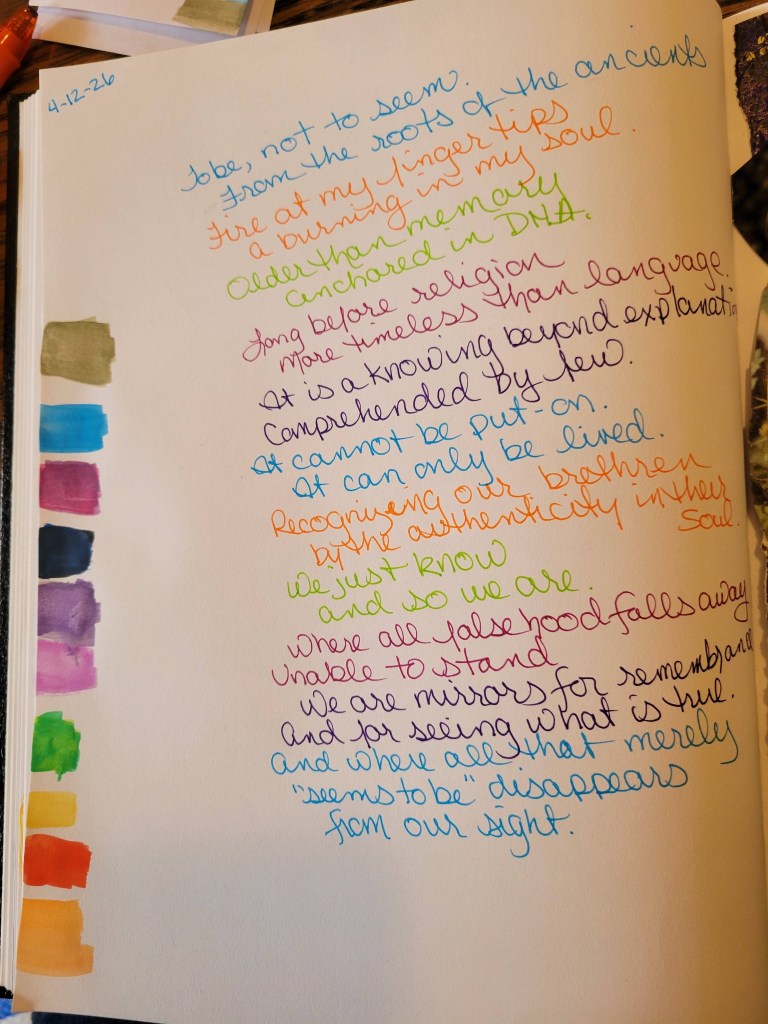 4-12-26
To be, not to seem.
From the roots of the ancients
Fire at my finger tips
a burning in my soul.
Older than memory
anchored in DNA.
Long before religion
more timeless than language.
It is a knowing beyond explanati
Comprehended by few.
It cannot be put-on.
It can only be lived.
Recognizing our brethren
by the authenticity in their
Soul.
We just know
and so we are.
Where all falsehood falls away
Unable to stand
We are mirrors for remembrance
And for seeing what is true.
And where all that merely
"seems to be" disappears
from our sight.